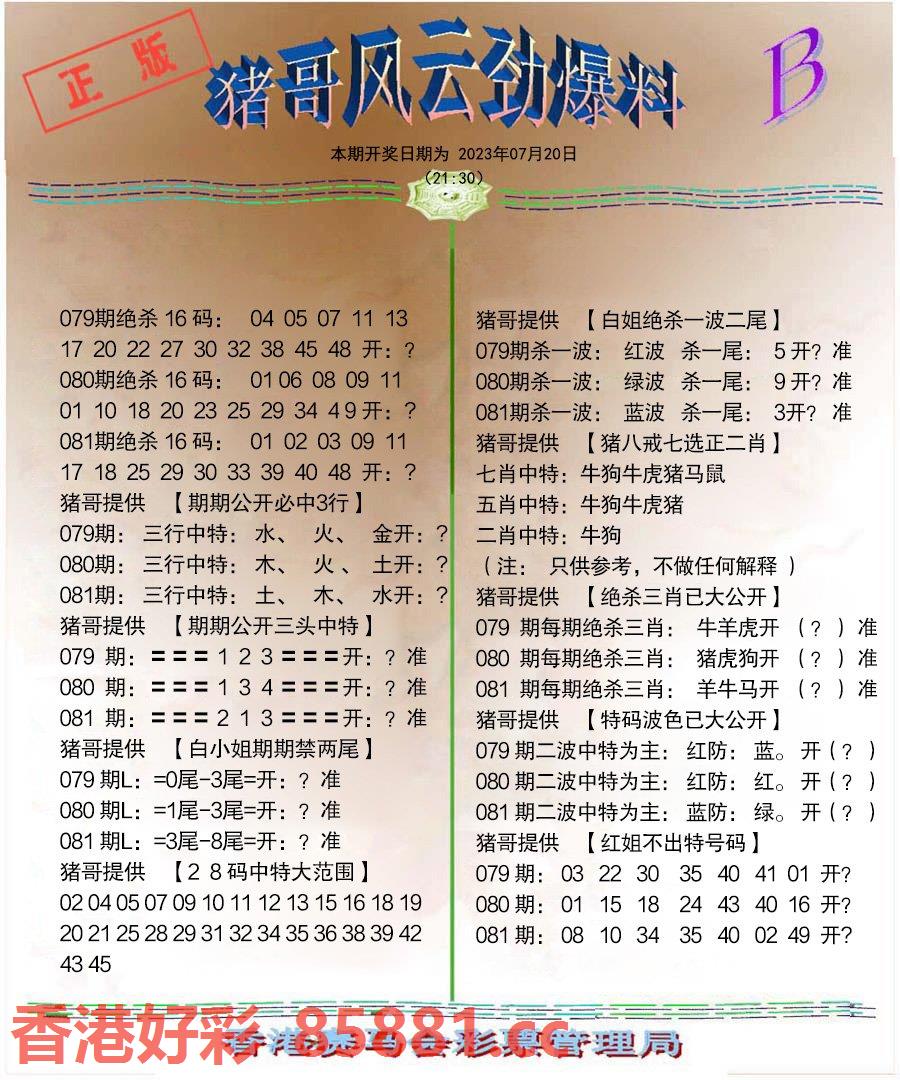 正版
猪哥风云劲爆料
B
本期开奖日期为 2023年07月20日
(21:30)
079期绝杀 16 码： 04 05 07 11 13
17 20 22 27 30 32 38 45 48 开：?
080期绝杀 16 码： 01 06 08 09 11
01 10 18 20 23 25 29 34 4 9 开：?
081期绝杀 16 码： 01 02 03 09 11
17 18 25 29 30 33 39 40 48 开：?
猪哥提供 【期期公开必中3行】
079期： 三行中特：水、 火、 金开：?
080期： 三行中特：木、 火、 土开：?
081期： 三行中特：土、 木、 水开：?
猪哥提供 【期期公开三头中特】
079 期：=== 1 2 3 ===开：? 准
080 期：=== 1 3 4 ===开：? 准
081 期：=== 2 1 3 ===开：? 准
猪哥提供 【白小姐期期禁两尾】
079 期L：=0尾-3尾=开：? 准
080 期L：=1尾-3尾=开：? 准
081 期L：=3尾-8尾=开：? 准
猪哥提供 【2 8 码中特大范围】
02 04 05 07 09 10 11 12 13 15 16 18 19
20 21 25 28 29 31 32 34 35 36 38 39 42
43 45
猪哥提供 【白姐绝杀一波二尾】
079期杀一波： 红波 杀一尾： 5 开? 准
080期杀一波： 绿波 杀一尾： 9 开? 准
081期杀一波： 蓝波 杀一尾： 3开? 准
猪哥提供 【猪八戒七选正二肖】
七肖中特：牛狗牛虎猪马鼠
五肖中特：牛狗牛虎猪
二肖中特：牛狗
（注： 只供参考，不做任何解释 ）
猪哥提供 【绝杀三肖已大公开】
079 期每期绝杀三肖： 牛羊虎开 （? ）准
080 期每期绝杀三肖： 猪虎狗开 （? ）准
081 期每期绝杀三肖： 羊牛马开 （? ）准
猪哥提供 【特码波色已大公开】
079 期二波中特为主：红防：蓝。开（? ）
080 期二波中特为主：红防：红。开（? ）
081 期二波中特为主：蓝防：绿。开（? ）
猪哥提供 【红姐不出特号码】
079 期： 03 22 30 35 40 41 01 开?
080 期： 01 15 18 24 43 40 16 开?
081 期： 08 10 34 35 40 02 49 开?
香港好彩 85881.cc
香港赛马会彩票管理局